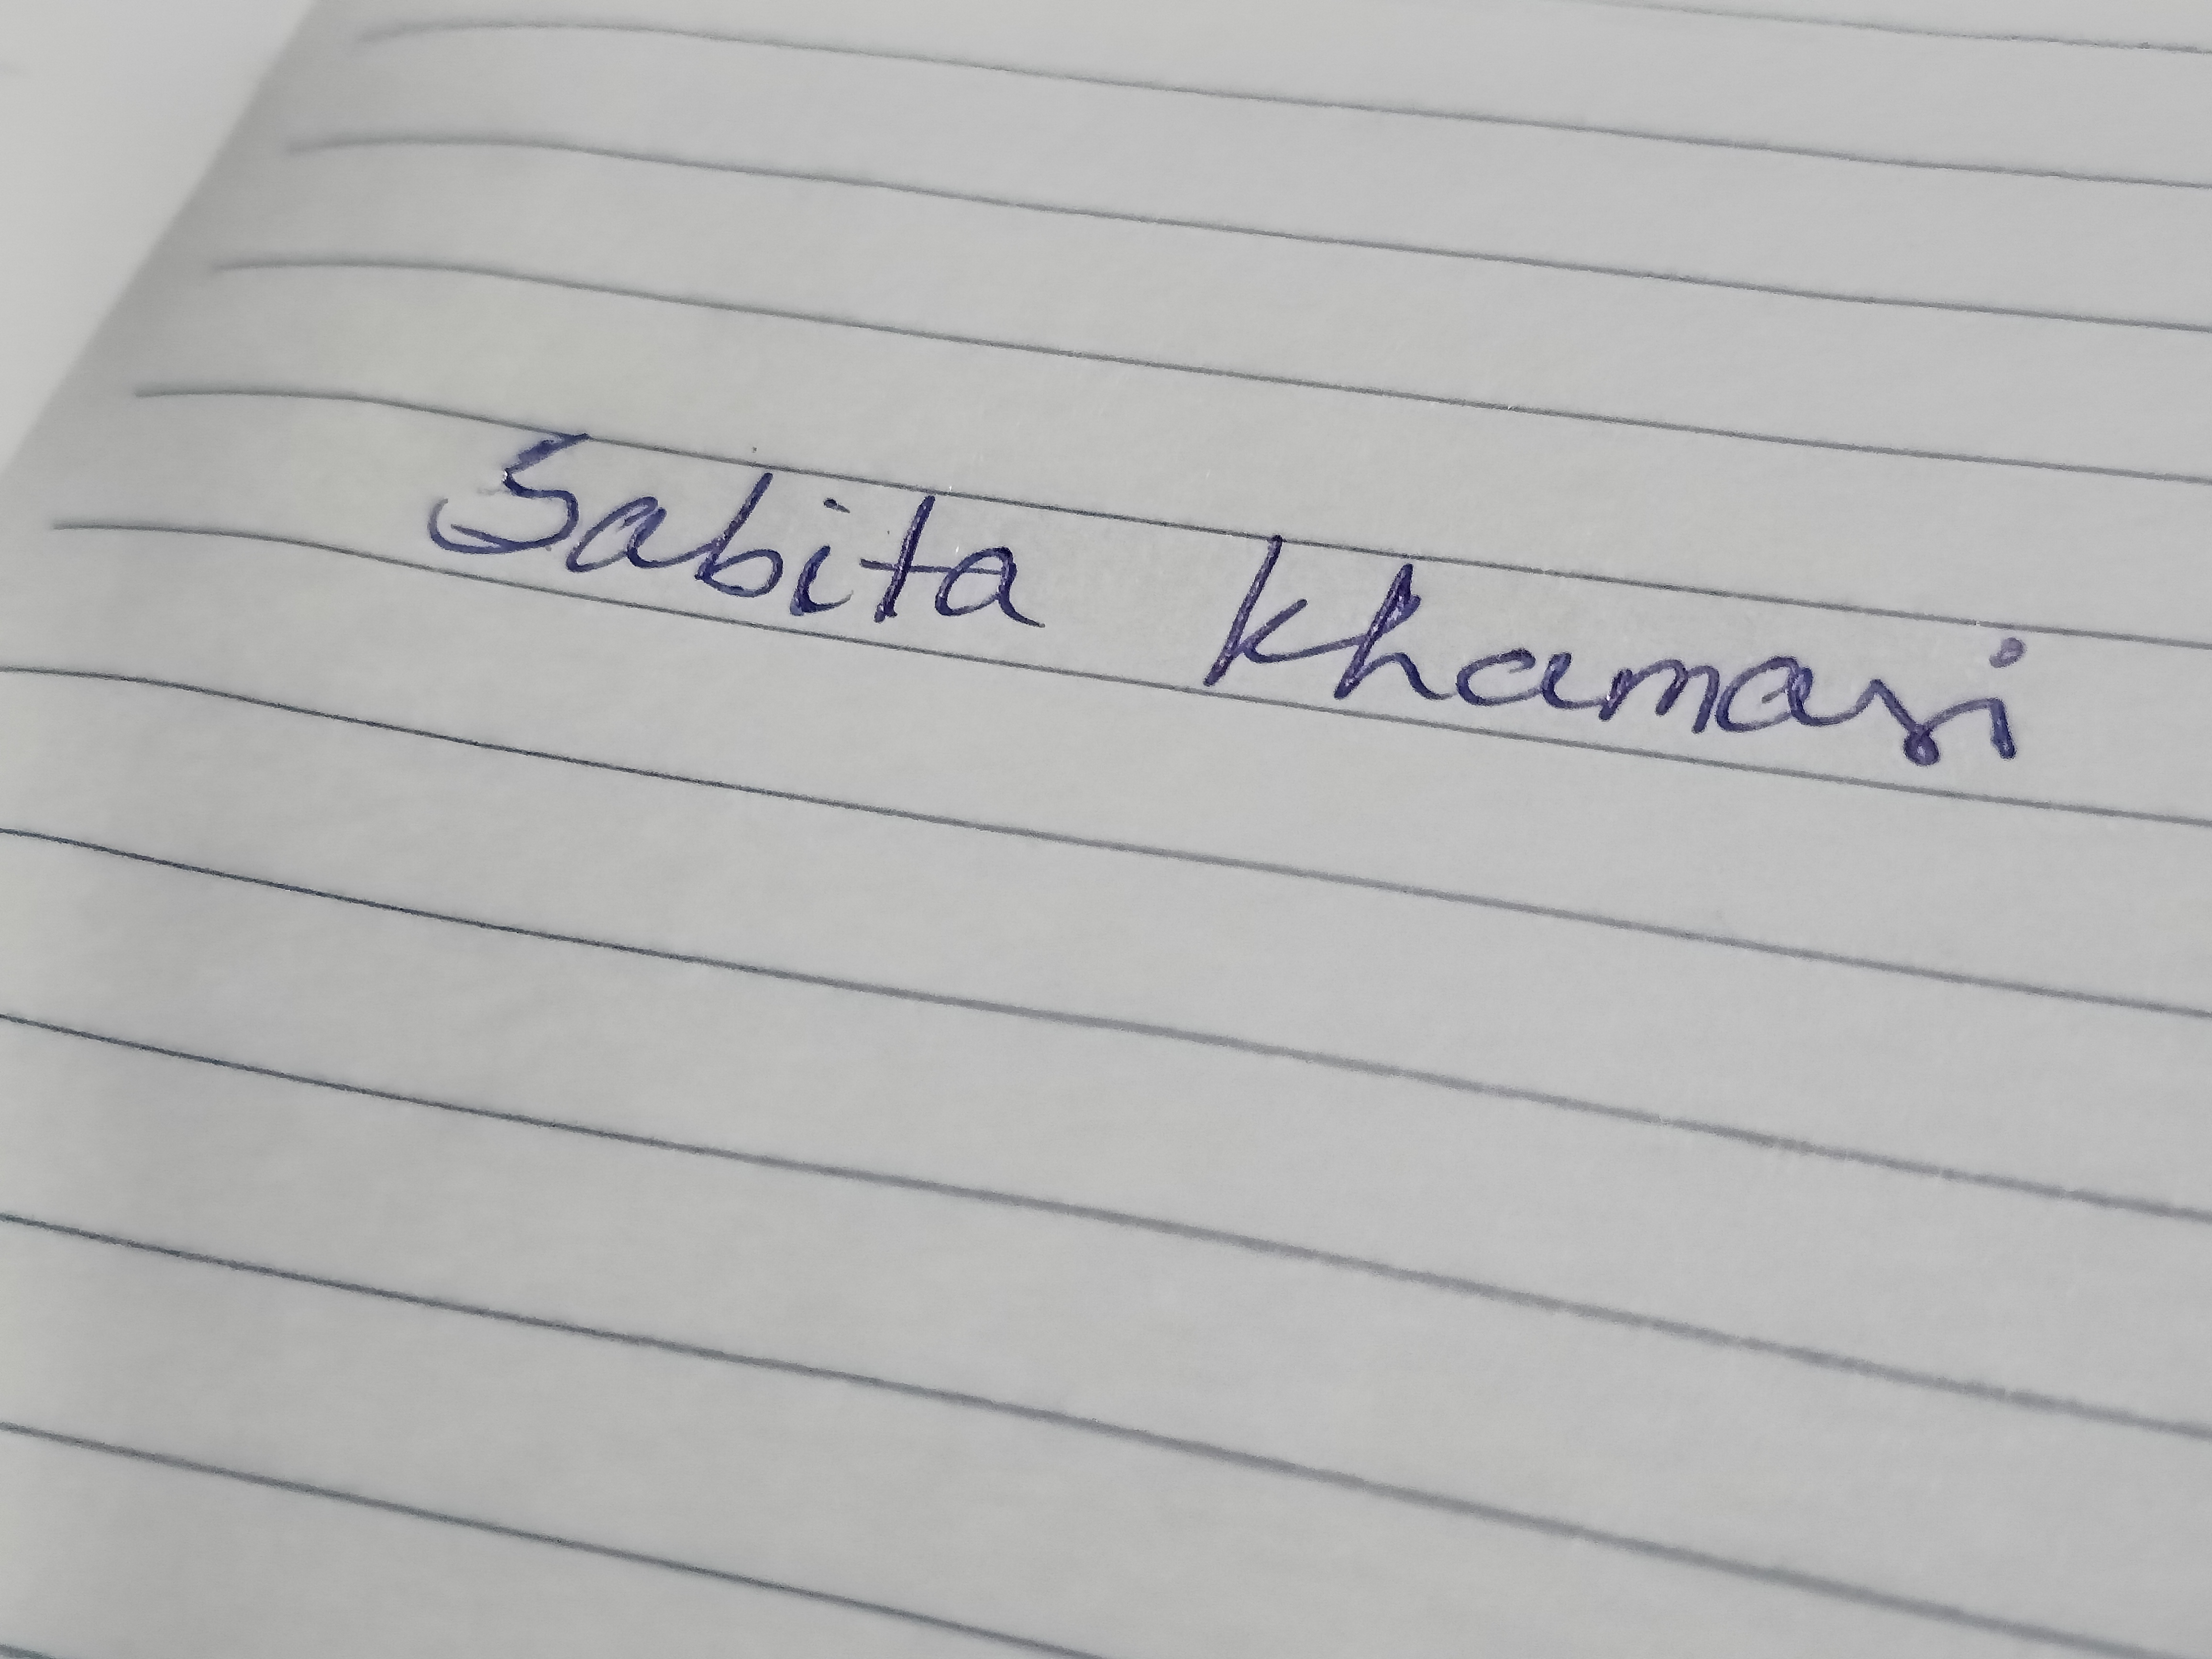 Sabita Khamari